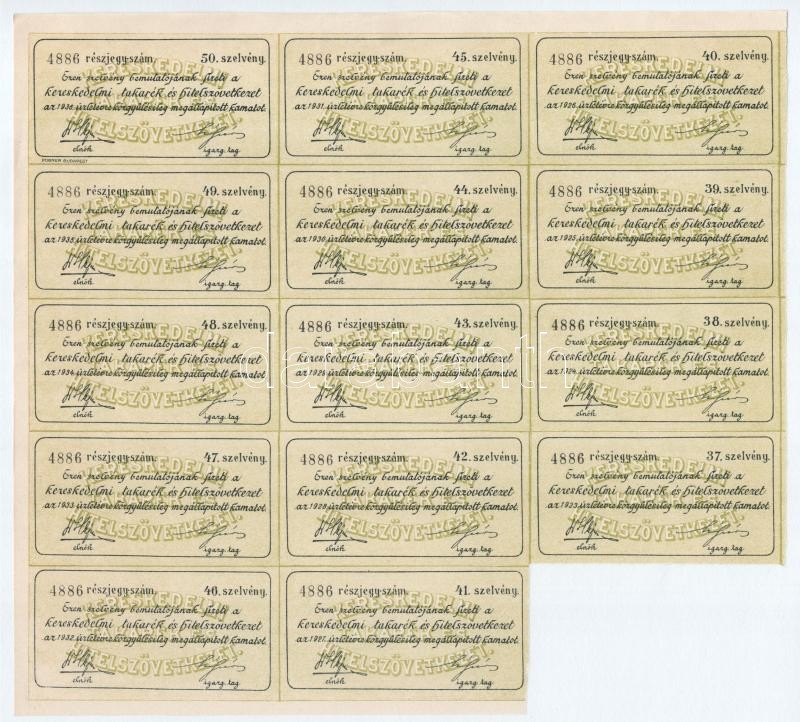 4886 részjegy-szám. 50. szelvény.
Ezen szelvény bemutatójának fizeti a
kereskedelmi takarék és hitelszövetkezet
az 1936. üzletévre közgyűlésileg megállapított kamatot.
elnök. igazg. tag
POSNER BUDAPEST
4886 részjegy-szám. 45. szelvény.
Ezen szelvény bemutatójának fizeti a
kereskedelmi takarék és hitelszövetkezet
az 1931. üzletévre közgyűlésileg megállapított kamatot.
elnök. igazg. tag
4886 részjegy-szám. 40. szelvény.
Ezen szelvény bemutatójának fizeti a
kereskedelmi takarék és hitelszövetkezet
az 1926. üzletévre közgyűlésileg megállapított kamatot.
elnök. igazg. tag
4886 részjegy-szám. 49. szelvény.
Ezen szelvény bemutatójának fizeti a
kereskedelmi takarék és hitelszövetkezet
az 1935. üzletévre közgyűlésileg megállapított kamatot.
elnök. igazg. tag
4886 részjegy-szám. 44. szelvény.
Ezen szelvény bemutatójának fizeti a
kereskedelmi takarék és hitelszövetkezet
az 1930. üzletévre közgyűlésileg megállapított kamatot.
elnök. igazg. tag
4886 részjegy-szám. 39. szelvény.
Ezen szelvény bemutatójának fizeti a
kereskedelmi takarék és hitelszövetkezet
az 1925. üzletévre közgyűlésileg megállapított kamatot.
elnök. igazg. tag
4886 részjegy-szám. 48. szelvény.
Ezen szelvény bemutatójának fizeti a
kereskedelmi takarék és hitelszövetkezet
az 1934. üzletévre közgyűlésileg megállapított kamatot.
elnök. igazg. tag
4886 részjegy-szám. 43. szelvény.
Ezen szelvény bemutatójának fizeti a
kereskedelmi takarék és hitelszövetkezet
az 1929. üzletévre közgyűlésileg megállapított kamatot.
elnök. igazg. tag
4886 részjegy-szám. 38. szelvény.
Ezen szelvény bemutatójának fizeti a
kereskedelmi takarék és hitelszövetkezet
az 1924. üzletévre közgyűlésileg megállapított kamatot.
elnök. igazg. tag
4886 részjegy-szám. 47. szelvény.
Ezen szelvény bemutatójának fizeti a
kereskedelmi takarék és hitelszövetkezet
az 1933. üzletévre közgyűlésileg megállapított kamatot.
elnök. igazg. tag
4886 részjegy-szám. 42. szelvény.
Ezen szelvény bemutatójának fizeti a
kereskedelmi takarék és hitelszövetkezet
az 1928. üzletévre közgyűlésileg megállapított kamatot.
elnök. igazg. tag
4886 részjegy-szám. 37. szelvény.
Ezen szelvény bemutatójának fizeti a
kereskedelmi takarék és hitelszövetkezet
az 1923. üzletévre közgyűlésileg megállapított kamatot.
elnök. igazg. tag
4886 részjegy-szám. 46. szelvény.
Ezen szelvény bemutatójának fizeti a
kereskedelmi takarék és hitelszövetkezet
az 1932. üzletévre közgyűlésileg megállapított kamatot.
elnök. igazg. tag
4886 részjegy-szám. 41. szelvény.
Ezen szelvény bemutatójának fizeti a
kereskedelmi takarék és hitelszövetkezet
az 1927. üzletévre közgyűlésileg megállapított kamatot.
elnök. igazg. tag